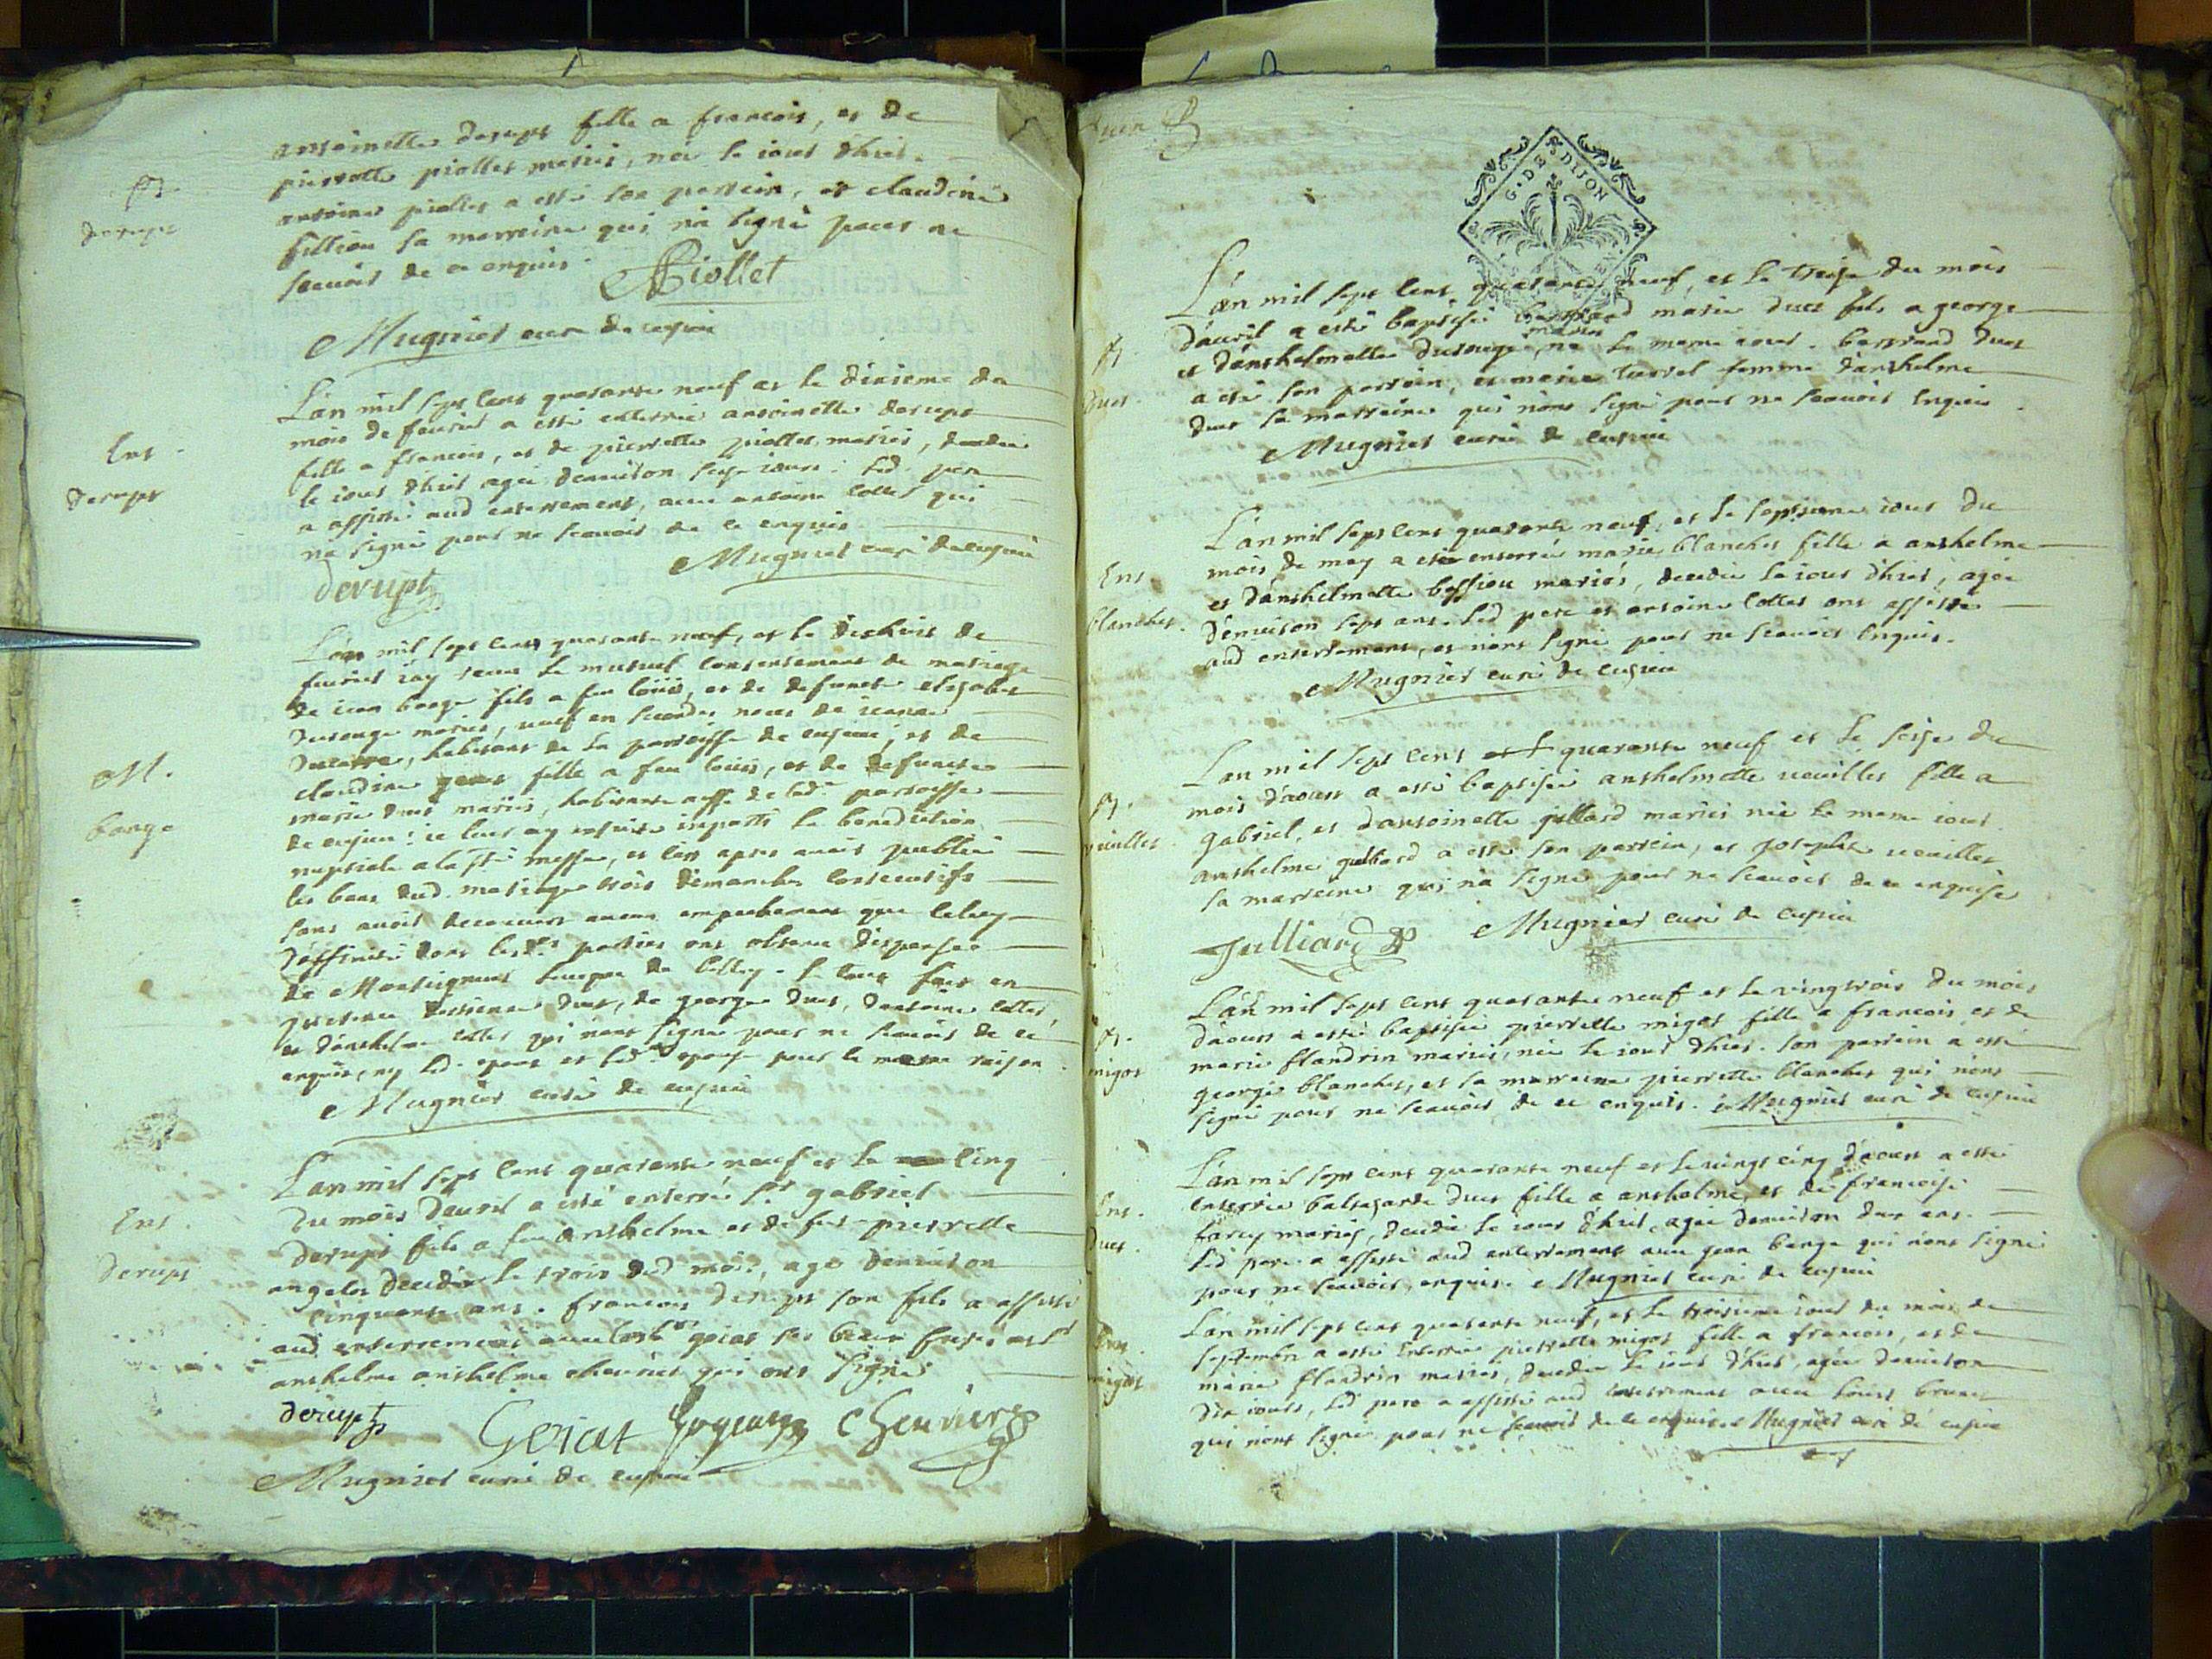 antoinette derupt fille a francois, et de
pierrette piollet mariés, née le iour d'hier.
antoine piollet a esté son parrein, et claudine
fillion sa marreine qui n'a signé pour ne
scavoir de ce enquis.
B.
derupt
APiollet
Mugnier curé de cuzieu
L'an mil sept cent quarante neuf et le dixieme du
mois de feurier a esté enterrée antoinette derupt
fille a francois, et de pierrette piollet mariés, decedée
le iour d'hier agée d'enuiron seize iours. led. pere
a assisté aud enterrement, auec antoine collet qui
n'a signé pour ne scauoir de ce enquis
Ent.
derupt
Mugnier curé de cuzieu
derupt
L'an mil sept cent quarante neuf, et le dixhuit de
feurier i'ay receu le mutuel consentement de mariage
de iean barge fils a feu loüis, et de defuncte elizabet
mariés, veuf en secondes noces de
habitant de la parroisse de cuzieu, et de
claudine fille a feu loüis, et de defuncte
marie duet mariés, habitante aussi de lad. parroisse
de cuzieu: ie leur ay ensuite imparti la benediction
nuptiale a la ste messe, et ce apres auoir publié
les bans dud. mariage trois dimanches consecutifs
sans auoir decouuert aucun empechement que celuy
d'affinité dont lesd. parties ont obtenu dispense
de Monseigneur l'eueque de belley. le tout fait en
presence d'estienne duet, de george duet, d'antoine collet,
et d'anthelme collet qui n'ont signé pour ne scauoir de ce
enquis, ny led. epoux et lad. epouse pour la meme raison.
M.
barge
Mugnier curé de cuzieu
L'an mil sept cent quarante neuf et le cinq
du mois d'auril a esté enterré sr gabriel
derupt fils a feu anthelme et de fut pierrette
angelot decedé le trois dud mois, agé d'enuiron
cinquante ans. francois derupt son fils a assisté
aud enterrement auec les srs goiat ses beaux freres et sr
anthelme anthelme cheurier qui ont signé
Ent.
derupt
derupt Goiat Cheurier
Mugnier curé de cuzieu
G. DE DIJON
L'an mil sept cent quarante neuf, et le treize du mois
d'auril a esté baptisé bertrand marie duet fils a george
mariés
et d'anthelmette né le meme iour. bertrand duet
a esté son parrein, et marie turrel femme d'anthelme
duet sa marreine qui n'ont signé pour ne scauoir enquis.
B.
duet.
Mugnier curé de cuzieu
L'an mil sept cent quarante neuf, et le septieme iour du
mois de may a esté enterrée marie blanchet fille a anthelme
et d'anthelmette bessieu mariés, decedée le iour d'hier, agée
d'enuiron sept ans. led pere et antoine collet ont assisté
aud enterrement, et n'ont signé pour ne scauoir enquis.
Ent
blanchet.
Mugnier curé de cuzieu
L'an mil sept cent quarante neuf et le seize du
mois d'aoust a esté baptisée anthelmette veuillet fille a
gabriel, et d'antoinette julliard mariés née le meme iour.
anthelme julliard a esté son parrein, et josephte veuillet
sa marreine qui n'a signé pour ne scauoir de ce enquise
B.
veuillet.
Julliard Mugnier curé de cuzieu
L'an mil sept cent quarante neuf et le vingtrois du mois
d'aoust a esté baptisée pierrette migot fille a francois et de
marie flandrin mariés, née le iour d'hier. son parrein a esté
george blanchet, et sa marreine pierrette blanchet qui n'ont
signé pour ne scauoir de ce enquis. Mugnier curé de cuzieu
B.
migot
L'an mil sept cent quarante neuf et le vingt cinq d'aoust a esté
enterrée baltazarde duet fille a anthelme, et de francoise
mariés, decedée le iour d'hier, agée d'enuiron deux ans.
led pere a assisté aud enterrement auec jean barge qui n'ont signé
pour ne scauoir, enquis. Mugnier curé de cuzieu
Ent.
duet.
L'an mil sept cent quarante neuf, et le troisieme iour du mois de
septembre a esté enterrée pierrette migot fille a francois, et de
marie flandrin mariés, decedée le iour d'hier, agée d'enuiron
dix iours, led pere a assisté aud enterrement auec louis brunet
qui n'ont signé pour ne scauoir de ce enquis. Mugnier curé de cuzieu
Ent.
migot